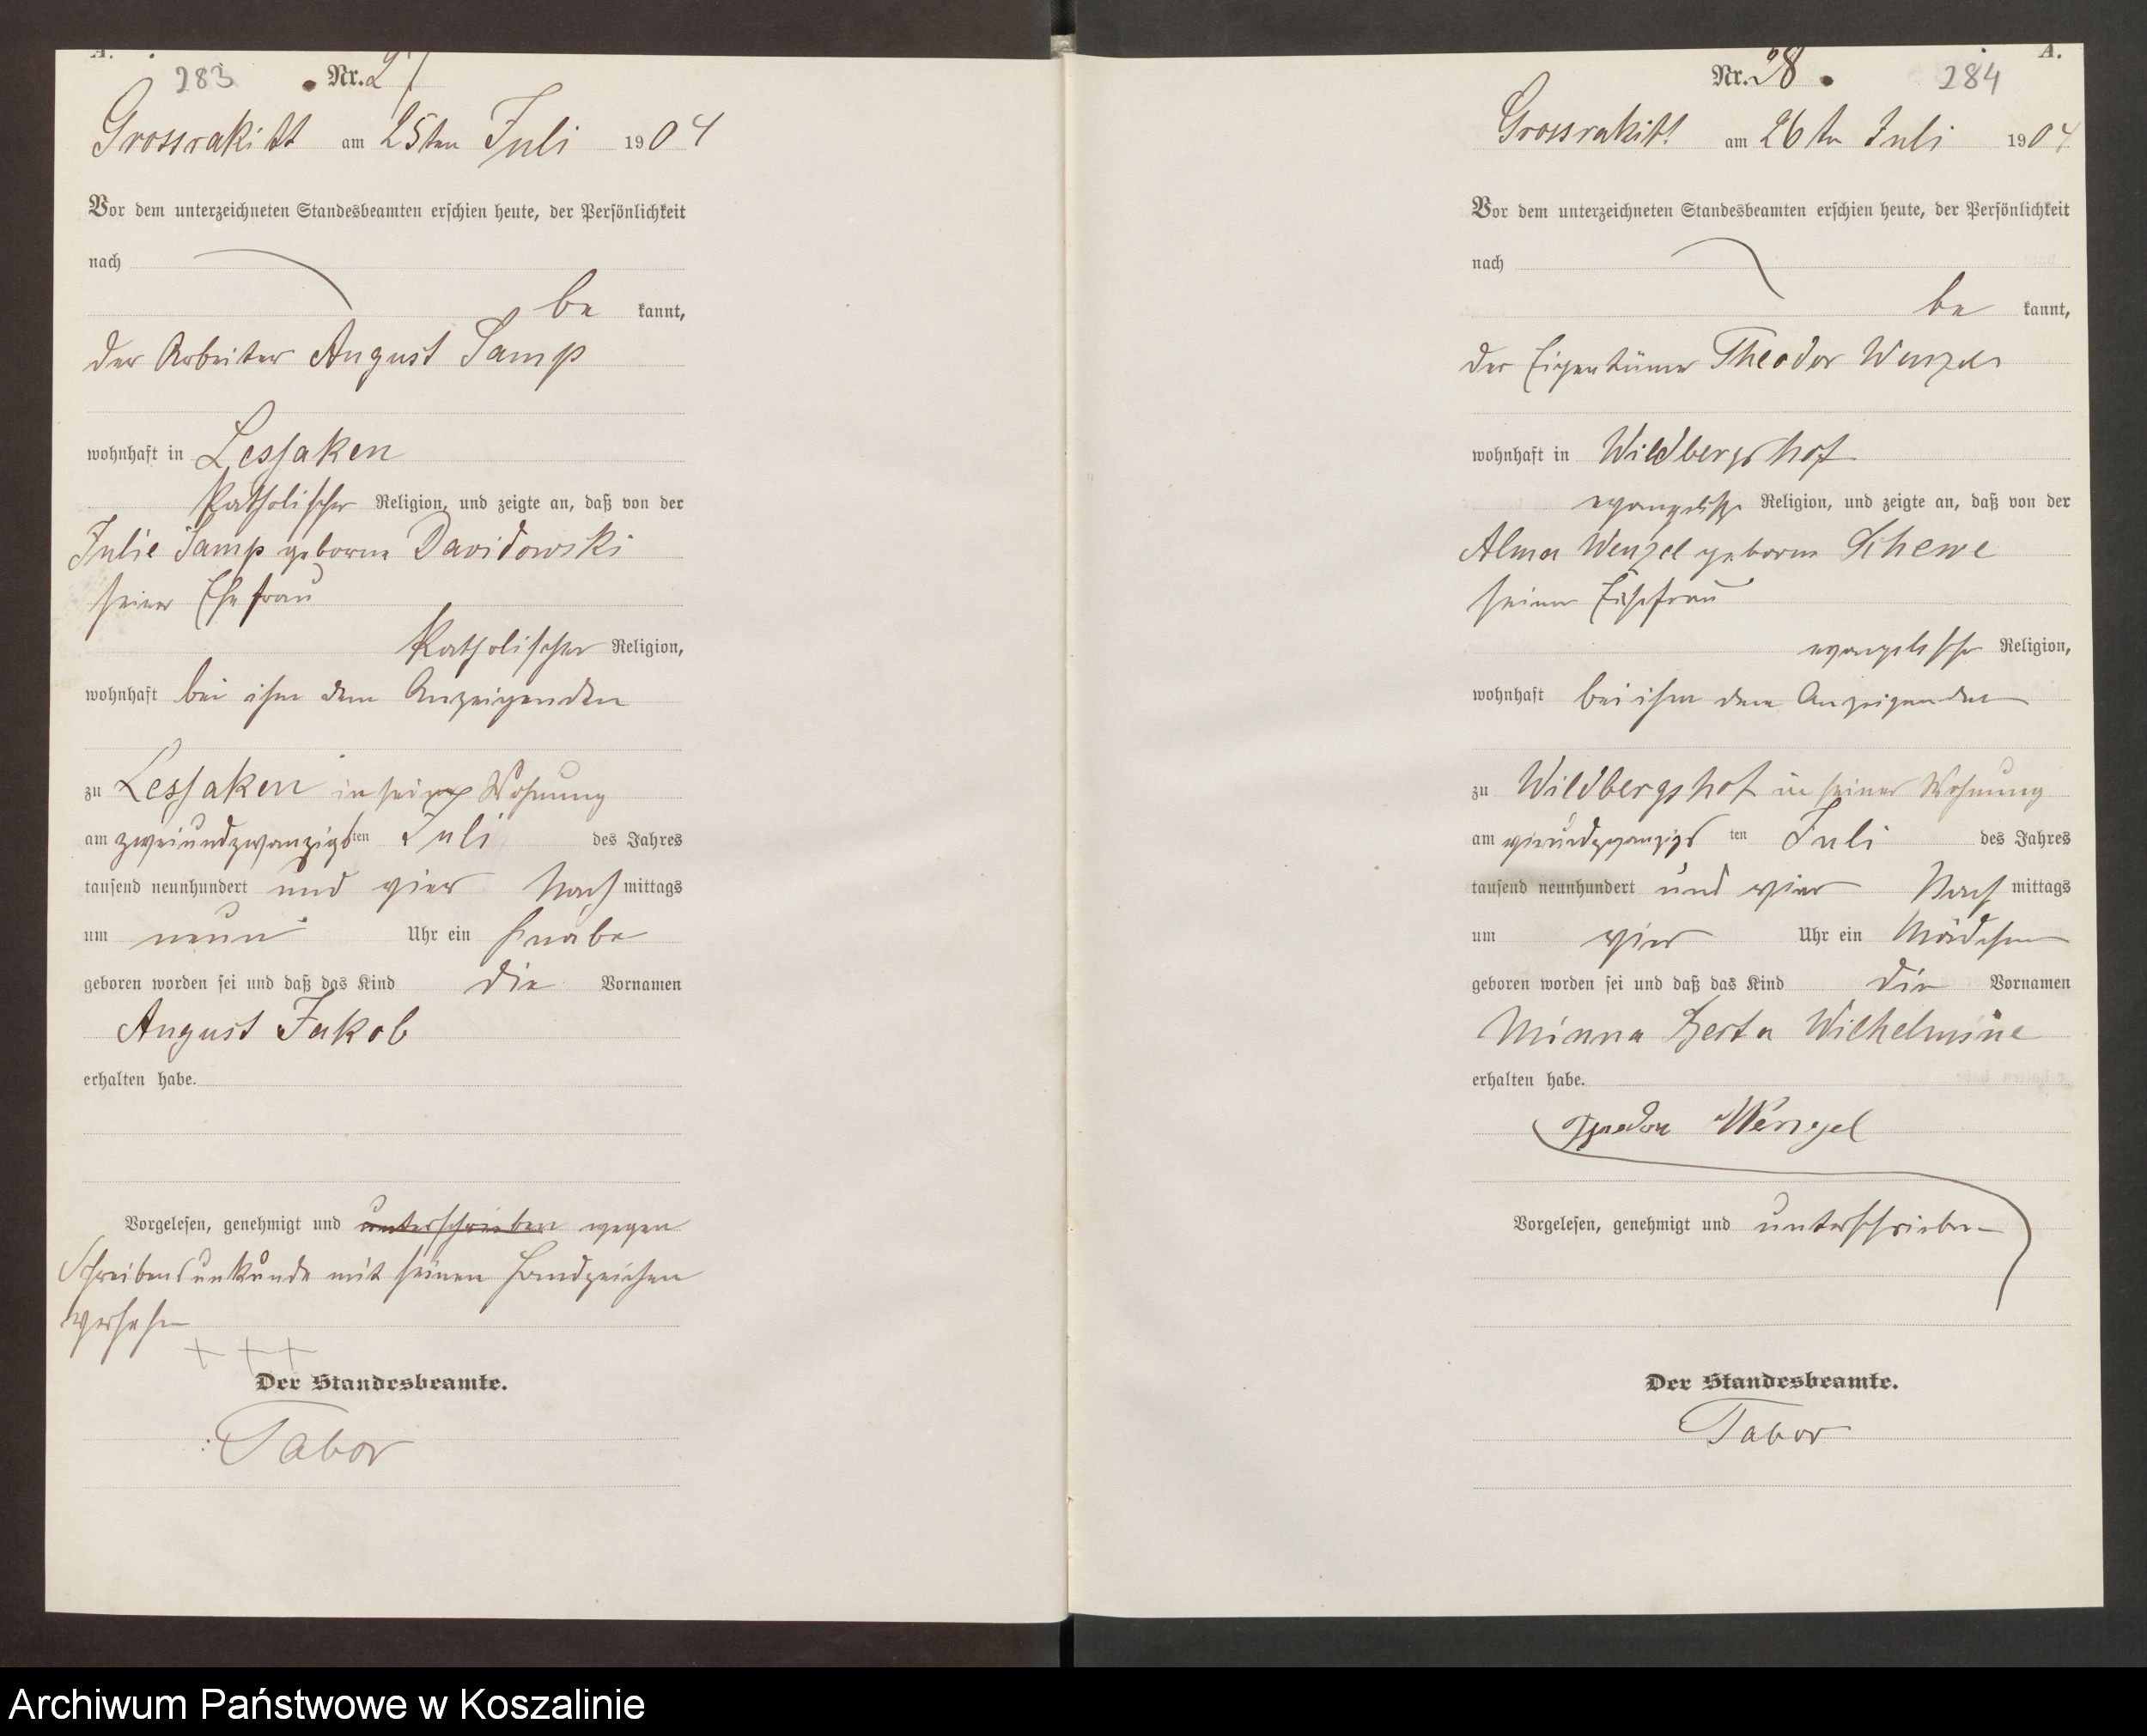 A.
283 Nr. 27
Grossrakitt am 25ten Juli 1904
Vor dem unterzeichneten Standesbeamten erschien heute, der Persönlichkeit
nach
be kannt,
der Arbeiter August Samp
wohnhaft in Lessaken
Katholischer Religion, und zeigte an, daß von der
Julie Samp geborne Davidowski
seiner Ehefrau
Katholischer Religion,
wohnhaft bei ihm dem Anzeigenden
zu Lessaken in seiner Wohnung
am zweiundzwanzigsten Juli des Jahres
tausend neunhundert und vier Nachmittags
um neun Uhr ein Knabe
geboren worden sei und daß das Kind die Vornamen
August Jakob
erhalten habe.
Vorgelesen, genehmigt und unterschrieben wegen
Schreibensunkunde mit seinen Handzeichen
versehen
+ + +
Der Standesbeamte.
Tabor
A.
Nr. 28. 284
Grossrakitt am 26ten Juli 1904
Vor dem unterzeichneten Standesbeamten erschien heute, der Persönlichkeit
nach
be kannt,
der Eigentümer Theodor Wenzel
wohnhaft in Wildbergshof
evangelischer Religion, und zeigte an, daß von der
Alma Wenzel geborne Schewe
seiner Ehefrau
evangelischer Religion,
wohnhaft bei ihm dem Anzeigenden
zu Wildbergshof in seiner Wohnung
am vierundzwanzigsten Juli des Jahres
tausend neunhundert und vier Nachmittags
um vier Uhr ein Mädchen
geboren worden sei und daß das Kind die Vornamen
Minna Herta Wilhelmine
erhalten habe.
Theodor Wenzel
Vorgelesen, genehmigt und unterschrieben
Der Standesbeamte.
Tabor
Archiwum Państwowe w Koszalinie